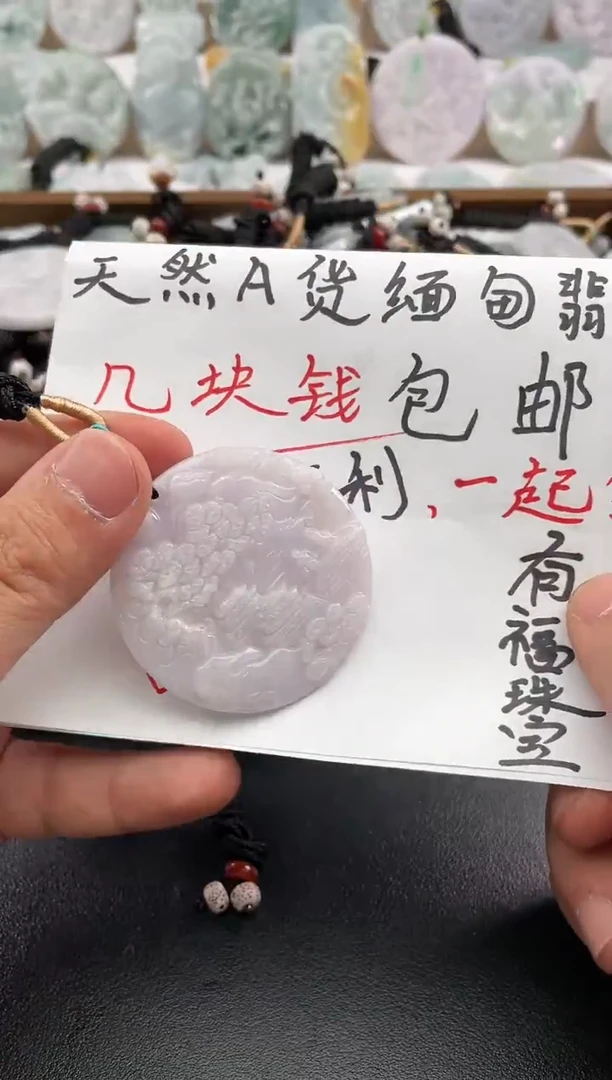 天然A货缅甸翡
几块钱包邮
利,一起
有福珠宝